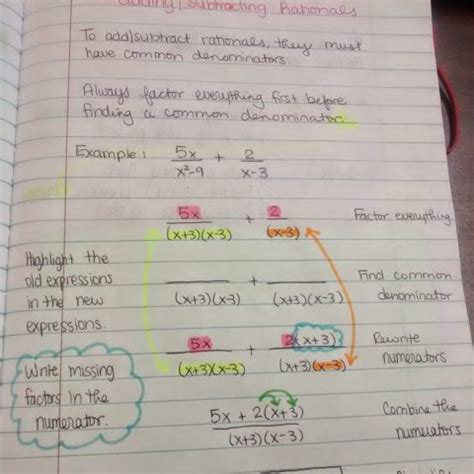 adding/subtracting Rationals
To add/subtract rationals, they must
have common denominators.
Always factor everything first before
finding a common denominator.
Example: 5x/x²-9 + 2/x-3
5x/(x+3)(x-3) + 2/(x-3) Factor everything
Highlight the
old expressions
in the new
expressions.
/(x+3)(x-3) + /(x+3)(x-3) Find common
denominator
5x/(x+3)(x-3) + 2(x+3)/(x+3)(x-3) Rewrite
numerators
Write missing
factors in the
numerator.
5x + 2(x+3)/(x+3)(x-3) Combine the
numerators